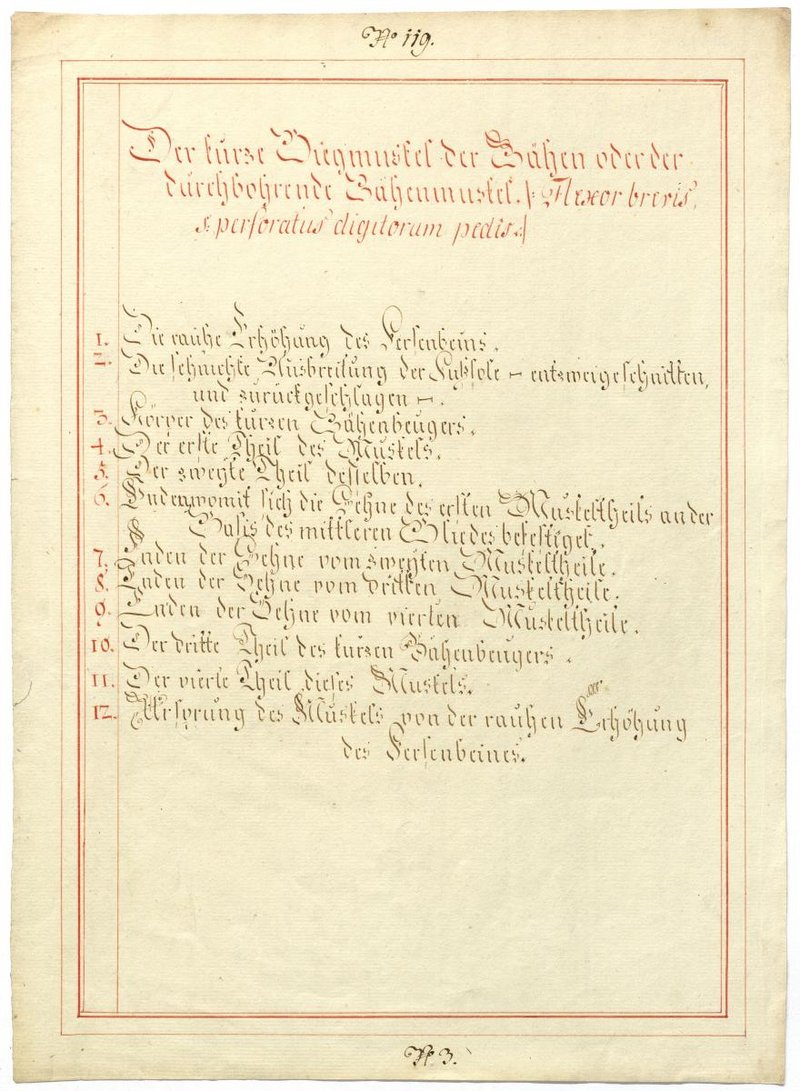 No 119.
Der kurze Biegmuskel der Zähen oder der
durchbohrende Zähenmuskel. |: Flexor brevis,
s: perforatus digitorum pedis. :|
1. Die rauhe Erhöhung des Fersenbeins.
2. Die sehnichte Ausbreitung der Fußsole – entzweigeschnitten,
und zurückgeschlagen –.
3. Körper des kurzen Zähenbeugers.
4. Der erste Theil des Muskels.
5. Der zweyte Theil desselben.
6. Enden womit sich die Sehne des ersten Muskeltheils an der
Basis des mittleren Gliedes befestiget.
7. Enden der Sehne vom zweyten Muskeltheile.
8. Enden der Sehne vom dritten Muskeltheile.
9. Enden der Sehne vom vierten Muskeltheile.
10. Der dritte Theil des kurzen Zähenbeugers.
11. Der vierte Theil dieses Muskels.
12. Ursprung des Muskels von der rauhen Erhöhung
des Fersenbeines.
N 3.